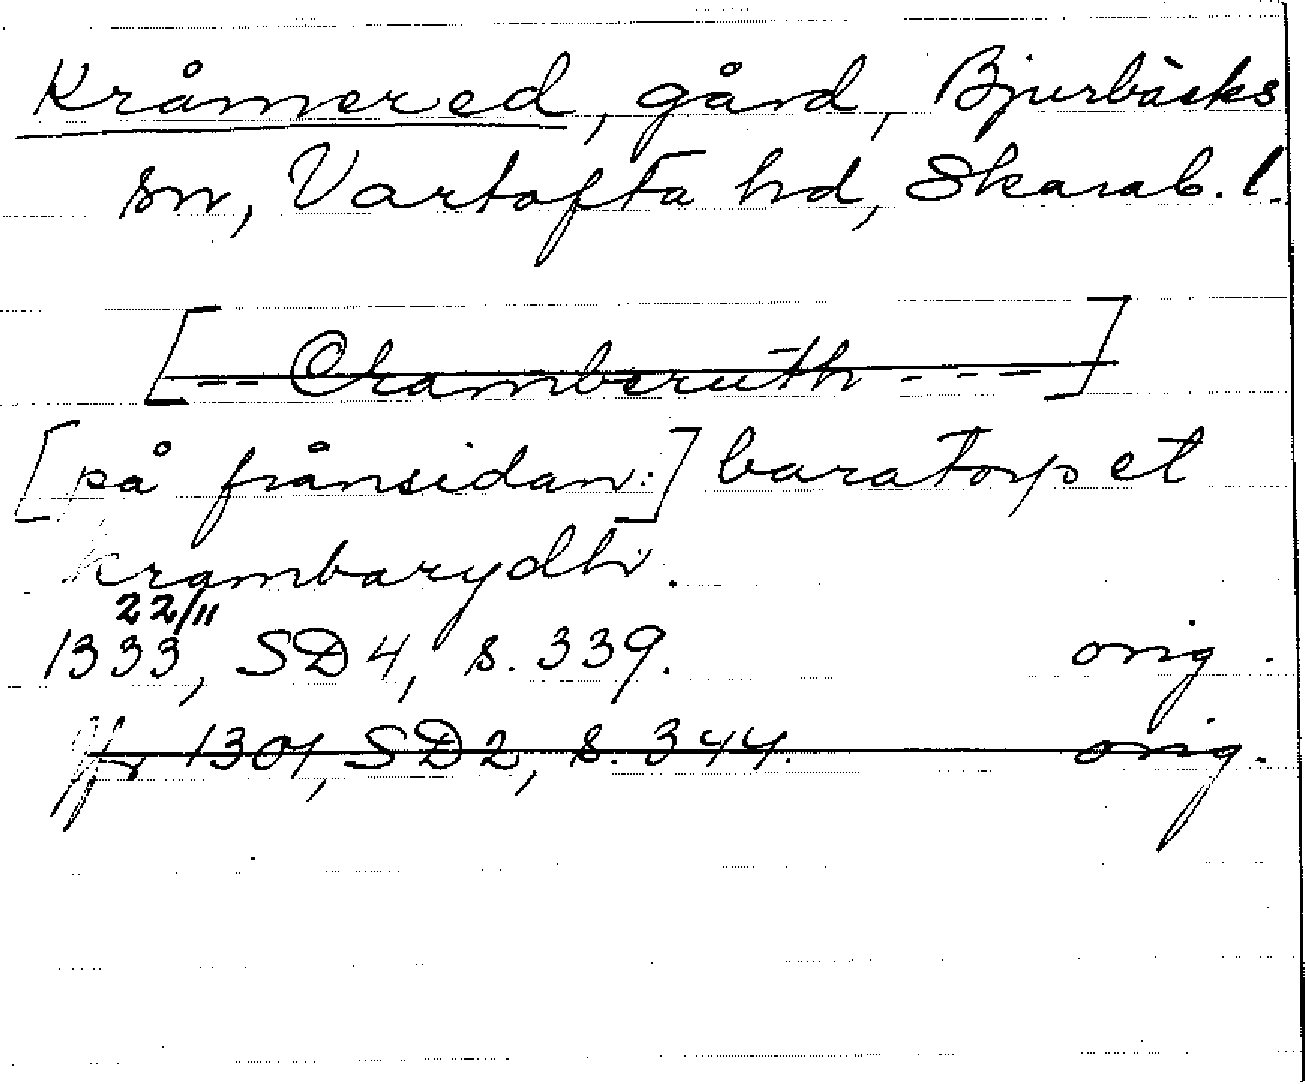 Kråmered, gård, Bjurbäcks
sn, Vartofta hd, Skarab. l.
[-- Cramberuth ---]
[på frånsidan:] baratorp et
krambarydhi.
22/11
1333, SD 4, s. 339. orig.
Jfr 1301, SD 2, s. 344. orig.